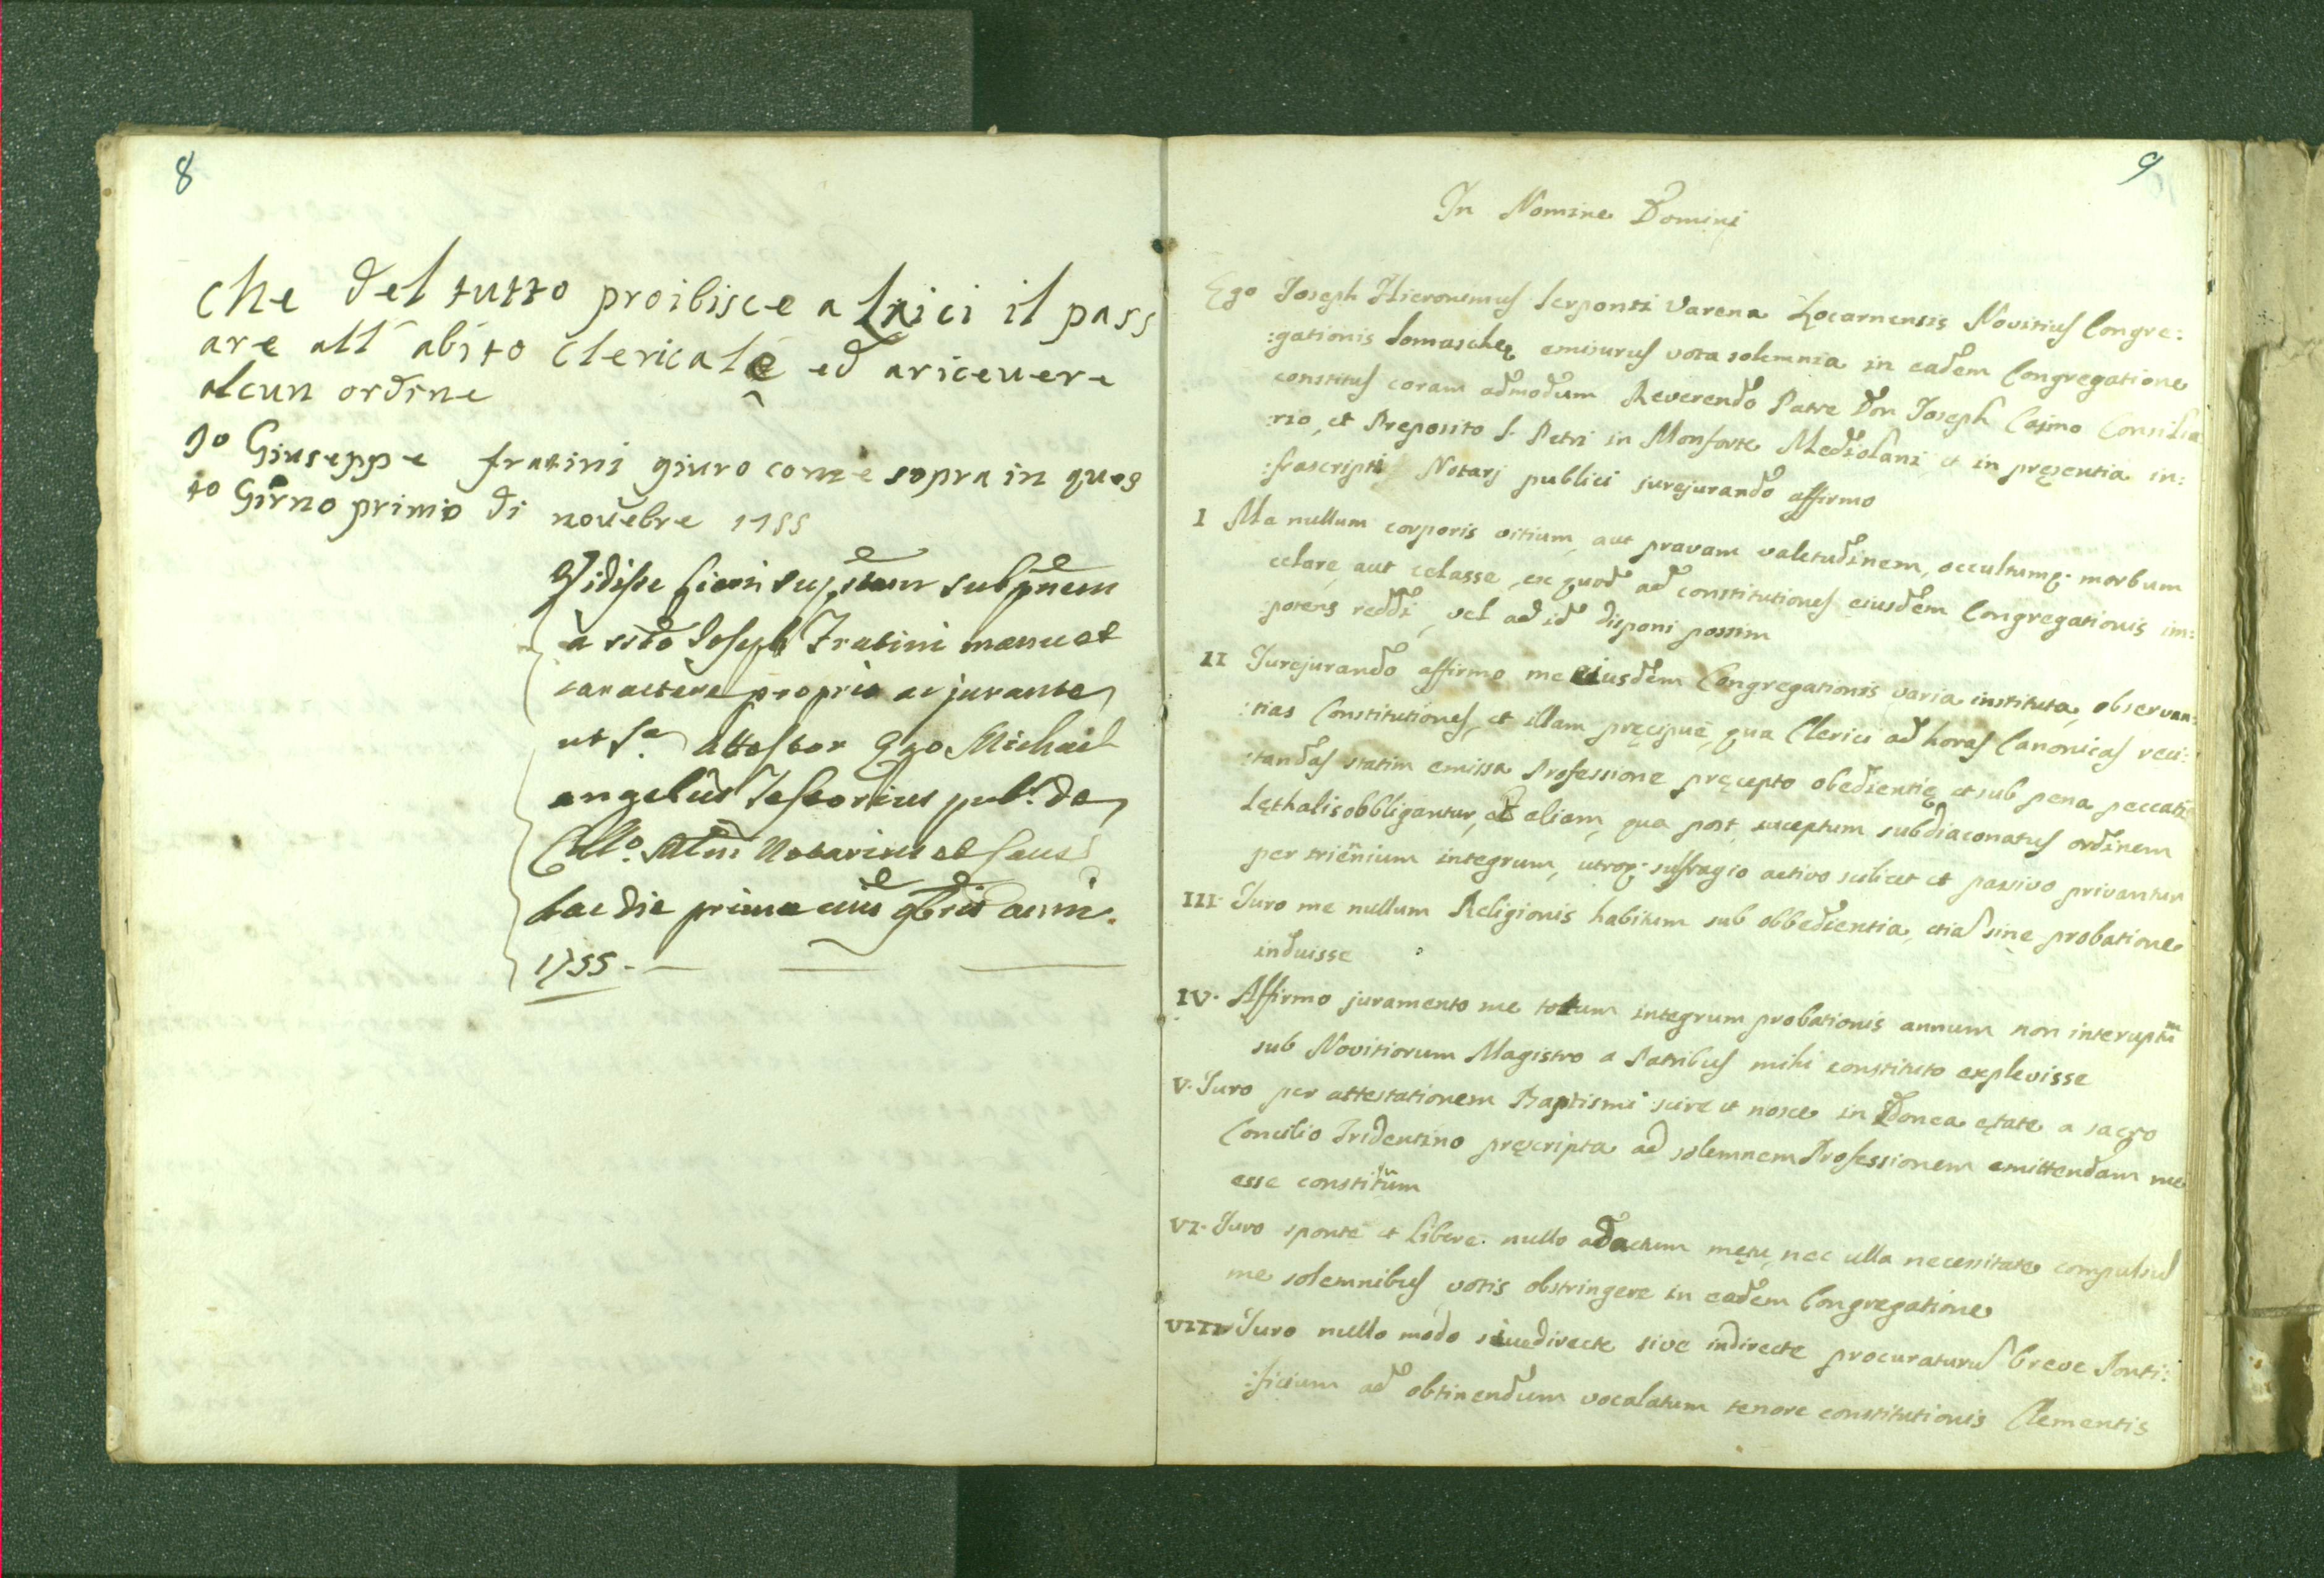 8
che del tutto proibisce a laici il pass
are all' abito clericale ed aricevere
alcun ordine
Jo Giuseppe fratini giuro come sopra in ques
to Girno primo di novebre 1755
Vidisse fieri supstam subspnem
a sido Joseph Fratini manu et
caractere proprio ac jurante
ut sa. Attestor Ego Michael
angelus Teseorius publ. de
Collo. Mlni Notarius et
hac die prima mis 9bris anni
1755.
9
In Nomine Domini
Ego Joseph Hieronimus Serponti Varena Locarnensis Novitius Congre:
:gationis Somaschę emisurus vota solemnia in eadem Congregatione
constitus coram admodum Reverendo Patre Don Joseph Casmo Consilia
:rio, et Preposito S. Petri in Monforte Mediolani et in pręsentia in:
:frascripti Notarj publici jurejurando affirmo
I Me nullum corporis vitium, aut pravam valetudinem, occultumq. morbum
celare, aut celasse, ex quod ad constitutiones ejusdem Congregationis im:
:potens reddi, vel ad id disponi possim
II Jurejurando affirmo me eiusdem Congregationis varia instituta, observan:
:tias Constitutiones, et illam pręcipue, qua Clerici ad horas Canonicas reci:
:tandas statim emissa Professione pręcepto obedientię et sub pena peccati
lęthalis obbligantur, et aliam, qua post susceptum subdiaconatus ordinem
per triēnium integrum, utroq. suffragio activo scilicet et passivo privantur
III. Juro me nullum Religionis habitum sub obbedientia, etia sine probatione
induisse
IV. Affirmo juramento me totum integrum probationis annum non interuptum
sub Novitiorum Magistro a Patribus mihi constituto explevisse
V. Juro per attestationem Baptismi scire et nosce in Idonea ętate a sacro
Concilio Tridentino pręscripta ad solemnem Professionem emittendam me
esse constitutum
VI. Juro sponte et libere nullo adactum mętu, nec ulla necessitate compulsus
me solemnibus votis obstringere in eadem Congregatione
VIII Juro nullo modo sive directe sive indirecte procuraturus breve Ponti:
:ficium ad obtinendum vocalatum tenore constitutionis Clementis